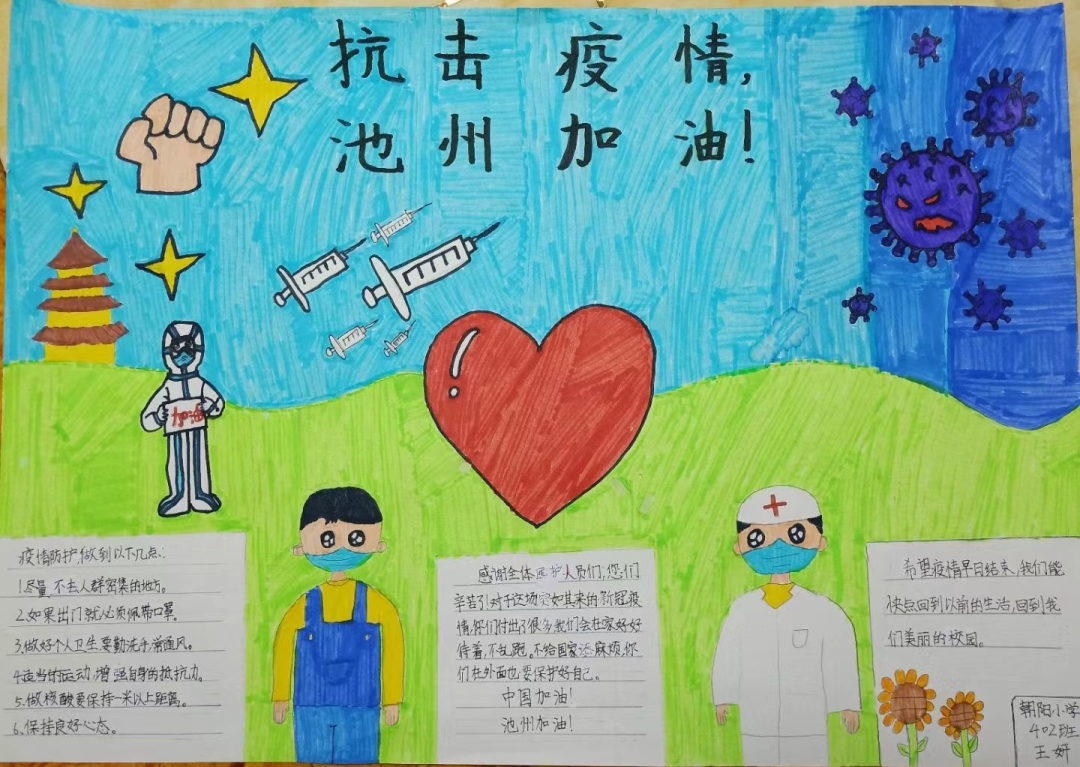 抗击疫情,
池州加油!
加油
疫情防护,做到以下几点:
1.尽量不去人群密集的地方。
2.如果出门就必须佩带口罩。
3.做好个人卫生,要勤洗手,常通风。
4.适当的运动,增强自身的抵抗力。
5.做核酸要保持一米以上距离。
6.保持良好心态。
感谢全体医护人员们,您们
辛苦了!对于这场突如其来的新冠疫
情,你们付出了很多,我们会在家好好
待着,不乱跑,不给国家添麻烦,你
们在外面也要保护好自己。
中国加油!
池州加油!
希望疫情早日结束,我们能
快点回到以前的生活,回到我
们美丽的校园。
朝阳小学
402班
王妍